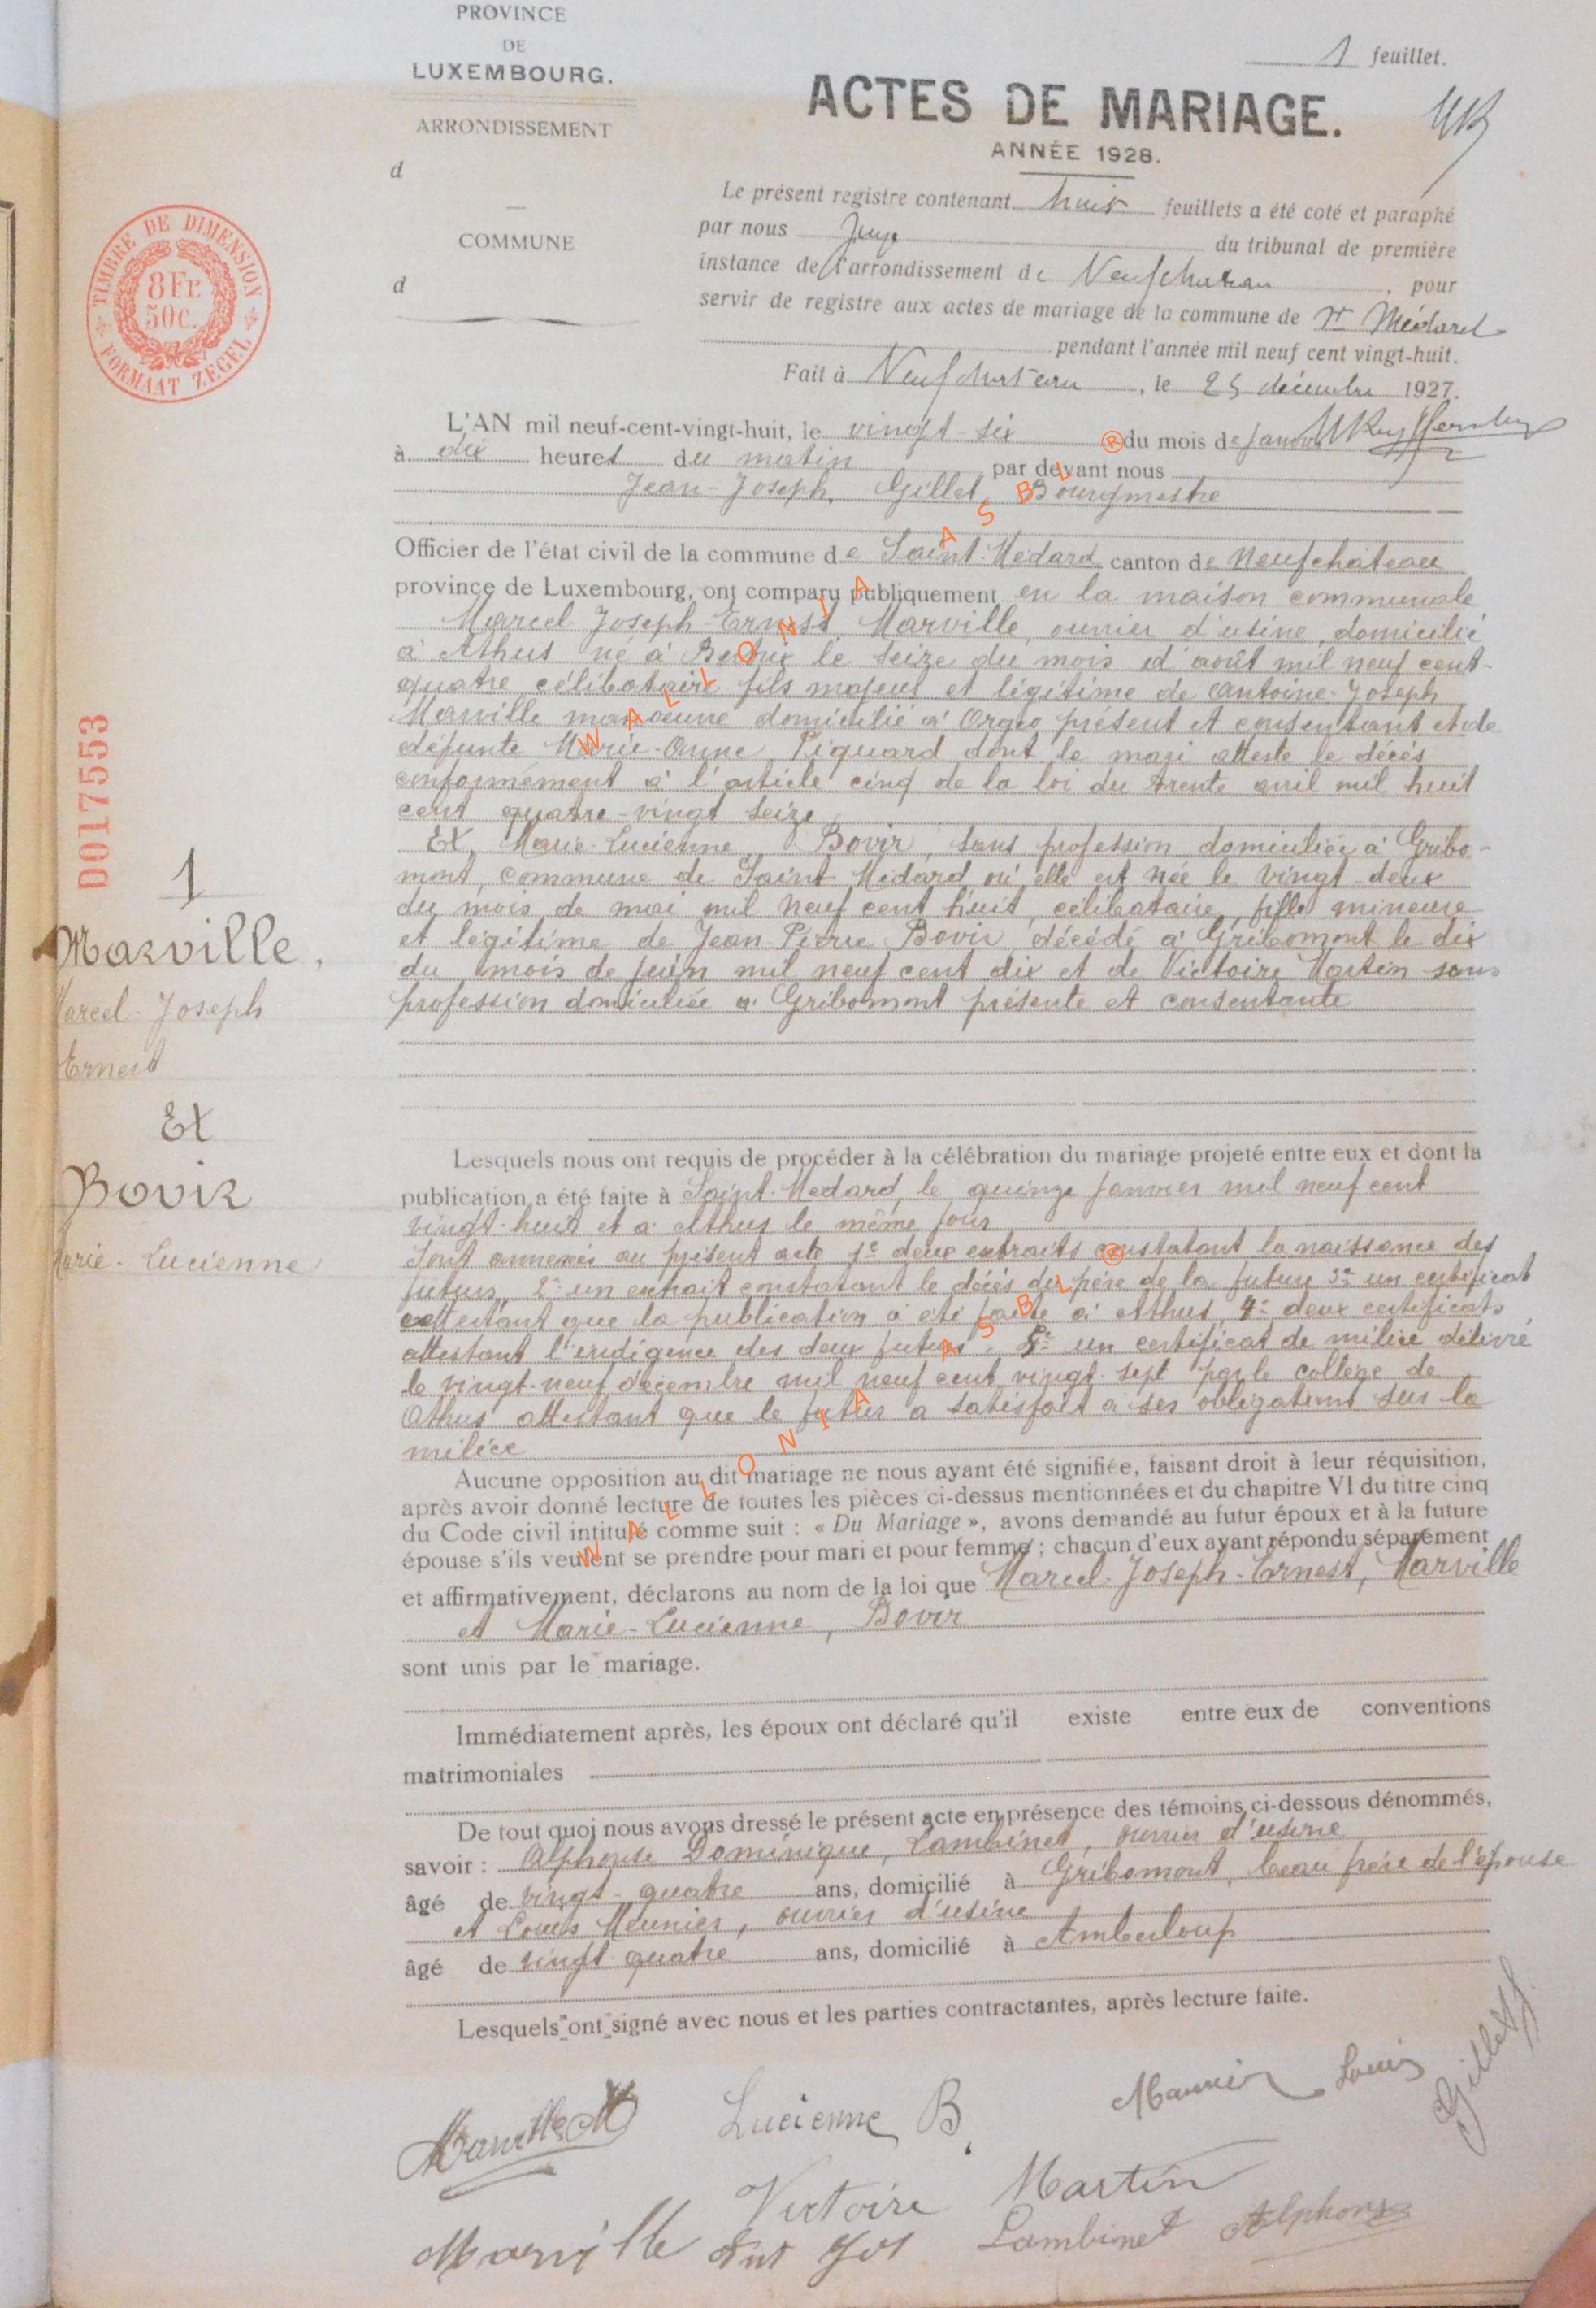 PROVINCE
DE
LUXEMBOURG.
ARRONDISSEMENT
d
COMMUNE
d
1 feuillet.
ACTES DE MARIAGE.
ANNÉE 1928.
Le présent registre contenant huit feuillets a été coté et paraphé
par nous Juge du tribunal de première
instance de l'arrondissement de Neufchateau, pour
servir de registre aux actes de mariage de la commune de St Médard
pendant l'année mil neuf cent vingt-huit.
Fait à Neufchateau, le 25 décembre 1927.
TIMBRE DE DIMENSION
8 Fr.
50 c.
FORMAAT ZEGEL
L'AN mil neuf-cent-vingt-huit, le vingt-six du mois de Janvier
à dix heures du matin par devant nous
Jean-Joseph, Gillet, Bourgmestre
Officier de l'état civil de la commune de Saint-Médard canton de Neufchateau
province de Luxembourg, ont comparu publiquement en la maison communale
Marcel-Joseph-Ernest, Marville, ouvrier d'usine, domicilié
à Athus né à Bertrix le seize du mois d'août mil neuf cent-
quatre, célibataire fils majeur et légitime de Antoine-Joseph
Marville manoeuvre domicilié à Orgeo présent et consentant et de
défunte Marie-Anne Piquard dont le mari atteste le décès
conformément à l'article cinq de la loi du trente avril mil huit
cent quatre-vingt seize
Et, Marie-Lucienne, Bovir, sans profession domiciliée à Gribo-
mont, commune de Saint-Médard où elle est née le vingt-deux
du mois de mai mil neuf cent huit, célibataire, fille mineure
et légitime de Jean-Pierre Bovir décédé à Gribomont le dix
du mois de juin mil neuf cent dix et de Victoire Martin sans
profession domiciliée à Gribomont présente et consentante
D017553
1
Marville,
Marcel-Joseph
Ernest
Et
Bovir
Marie-Lucienne
Lesquels nous ont requis de procéder à la célébration du mariage projeté entre eux et dont la
publication a été faite à Saint-Médard, le quinze Janvier mil neuf cent
vingt-huit et à Athus le même jour
Sont annexés au présent acte 1e deux extraits constatant la naissance des
futurs, 2e un extrait constatant le décès du père de la future 3e un certificat
attestant que la publication a été faite à Athus, 4e deux certificats
attestant l'indigence des deux futurs. 5e un certificat de milice délivré
le vingt-neuf décembre mil neuf cent vingt-sept par le collège de
Athus attestant que le futur a satisfait à ses obligations sur la
milice
Aucune opposition au dit mariage ne nous ayant été signifiée, faisant droit à leur réquisition,
après avoir donné lecture de toutes les pièces ci-dessus mentionnées et du chapitre VI du titre cinq
du Code civil intitulé comme suit : « Du Mariage », avons demandé au futur époux et à la future
épouse s'ils veulent se prendre pour mari et pour femme ; chacun d'eux ayant répondu séparément
et affirmativement, déclarons au nom de la loi que Marcel-Joseph-Ernest, Marville
et Marie-Lucienne, Bovir
sont unis par le mariage.
Immédiatement après, les époux ont déclaré qu'il existe entre eux de conventions
matrimoniales
De tout quoi nous avons dressé le présent acte en présence des témoins ci-dessous dénommés,
savoir : Alphonse Dominique, Lambinet, ouvrier d'usine
âgé de vingt-quatre ans, domicilié à Gribomont, beau frère de l'épouse
et Louis Meunier, ouvrier d'usine
âgé de vingt quatre ans, domicilié à Amberloup
Lesquels ont signé avec nous et les parties contractantes, après lecture faite.
Marville M
Lucienne B.
Meunier Louis
Gillet J.
Victoire Martin
Marville Ant Jos
Lambinet Alphonse
WALLONIA ASBL ®
WALLONIA ASBL ®